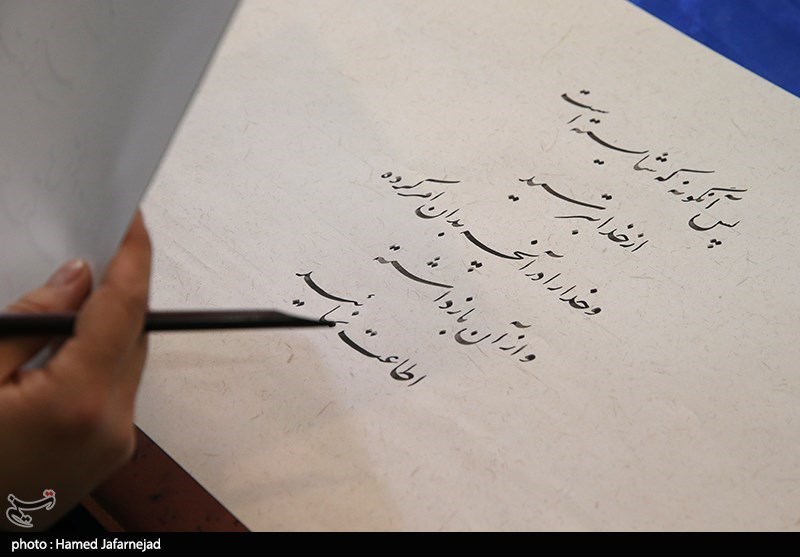 پس آنگونه که شایسته است
از خدا بترسید
و خدا را در آنچه بدان امر کرده
و از آن بازداشته
اطاعت نمائید
تسنیم
photo : Hamed Jafarnejad